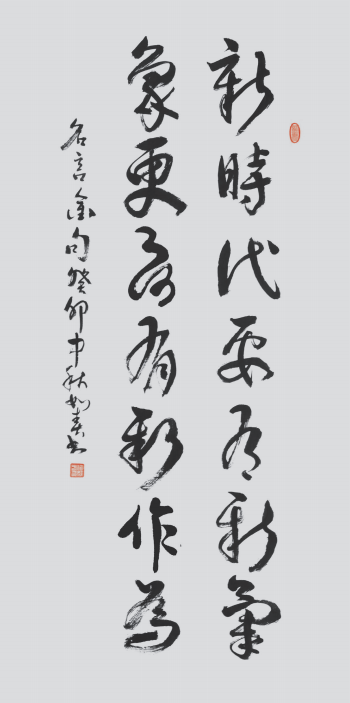 新時代要有新氣
象更要有新作為
名言金句癸卯中秋如书